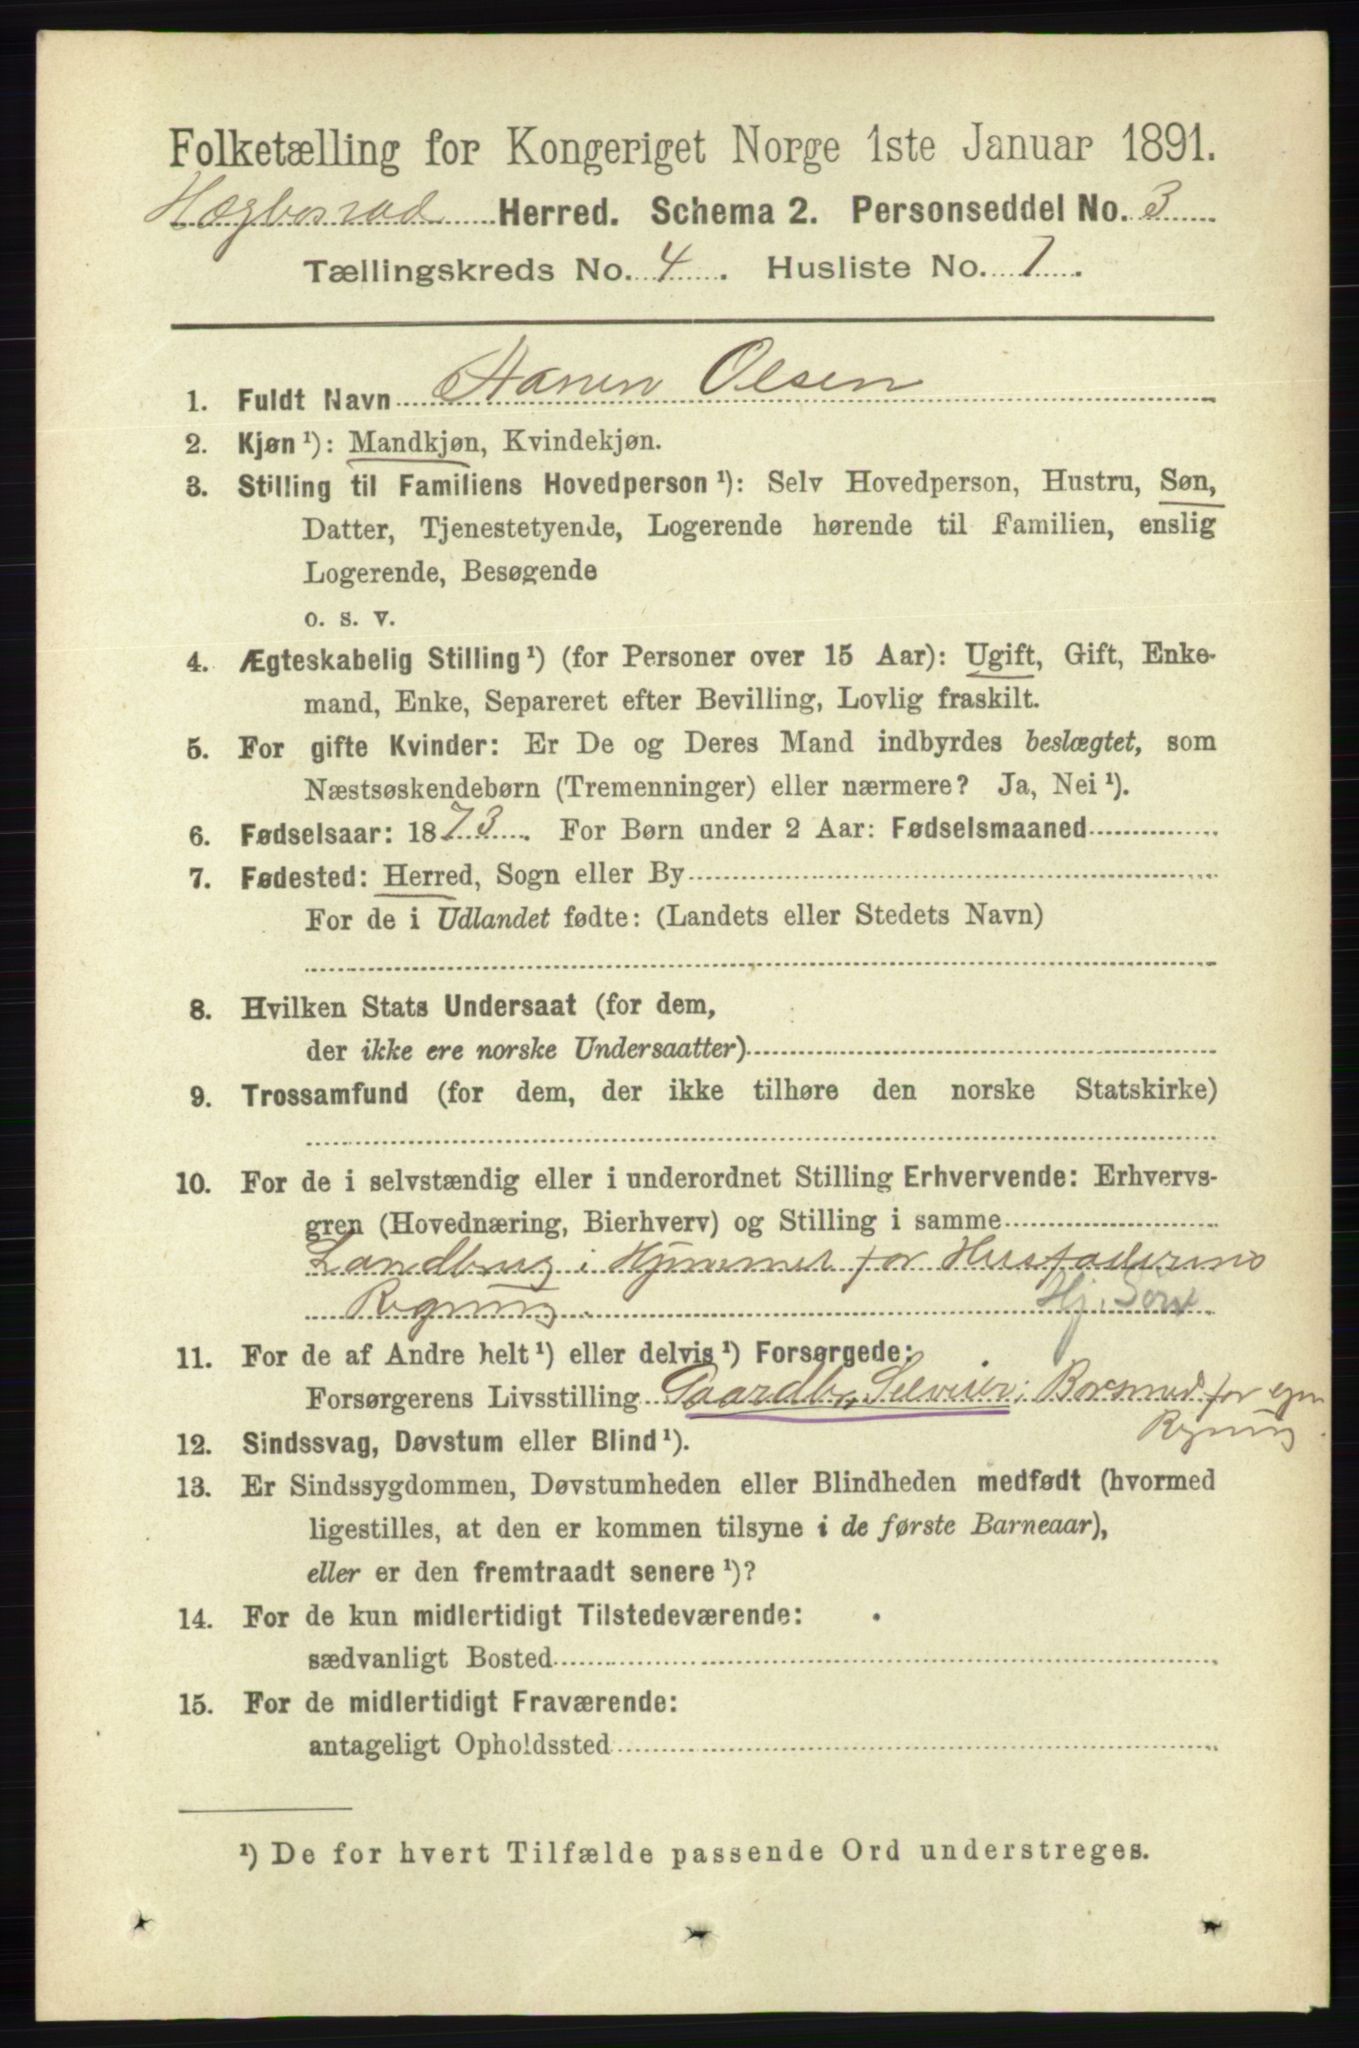 Folketælling for Kongeriget Norge 1ste Januar 1891.
Hægbostad Herred. Schema 2. Personseddel No. 3
Tællingskreds No. 4. Husliste No. 1.
1. Fuldt Navn Aanen Olsen
2. Kjøn ¹): Mandkjøn, Kvindekjøn.
3. Stilling til Familiens Hovedperson ¹): Selv Hovedperson, Hustru, Søn,
Datter, Tjenestetyende, Logerende hørende til Familien, enslig
Logerende, Besøgende
o. s. v.
4. Ægteskabelig Stilling ¹) (for Personer over 15 Aar): Ugift, Gift, Enke-
mand, Enke, Separeret efter Bevilling, Lovlig fraskilt.
5. For gifte Kvinder: Er De og Deres Mand indbyrdes beslægtet, som
Næstsøskendebørn (Tremenninger) eller nærmere? Ja, Nei ¹).
6. Fødselsaar: 1873. For Børn under 2 Aar: Fødselsmaaned
7. Fødested: Herred, Sogn eller By
For de i Udlandet fødte: (Landets eller Stedets Navn)
8. Hvilken Stats Undersaat (for dem,
der ikke ere norske Undersaatter)
9. Trossamfund (for dem, der ikke tilhøre den norske Statskirke)
10. For de i selvstændig eller i underordnet Stilling Erhvervende: Erhvervs-
gren (Hovednæring, Bierhverv) og Stilling i samme
Landbrug i Hjemmet for Husfaderens
Regning. Hj. Søn
11. For de af Andre helt ¹) eller delvis ¹) Forsørgede:
Forsørgerens Livsstilling Gaardbr, Selveier, for egen
Regning.
12. Sindssvag, Døvstum eller Blind ¹).
13. Er Sindssygdommen, Døvstumheden eller Blindheden medfødt (hvormed
ligestilles, at den er kommen tilsyne i de første Barneaar),
eller er den fremtraadt senere ¹)?
14. For de kun midlertidigt Tilstedeværende:
sædvanligt Bosted
15. For de midlertidigt Fraværende:
antageligt Opholdssted
¹) De for hvert Tilfælde passende Ord understreges.